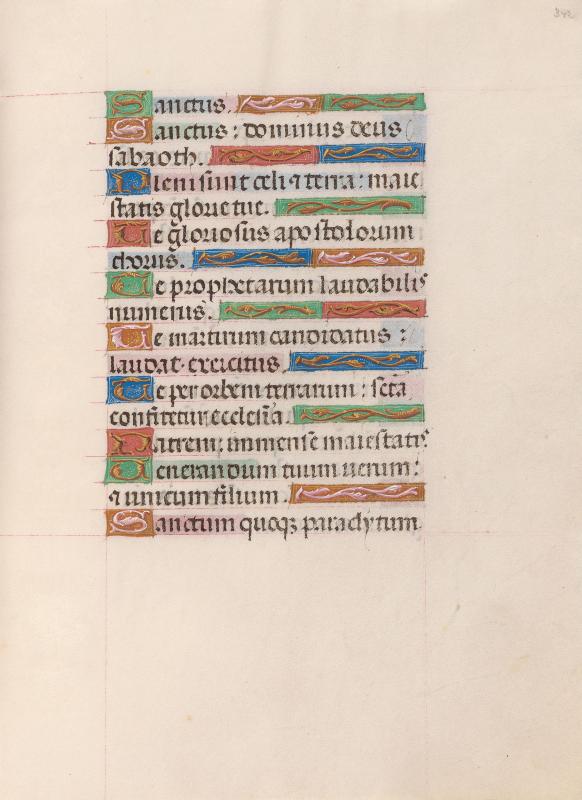 342
Sanctus.
Sanctus: dominus deus
sabaoth.
Pleni sunt celi ⁊ terra: maie
statis glorie tue.
Te gloriosus apostolorum
chorus.
Te prophetarum laudabilis
numerus.
Te martirum candidatus:
laudat exercitus.
Te per orbem terrarum: scta
confitetur ecclesia.
Patrem immense maiestatis.
Uenerandum tuum uerum:
⁊ unicum filium.
Sanctum quoqꝫ paraclytum